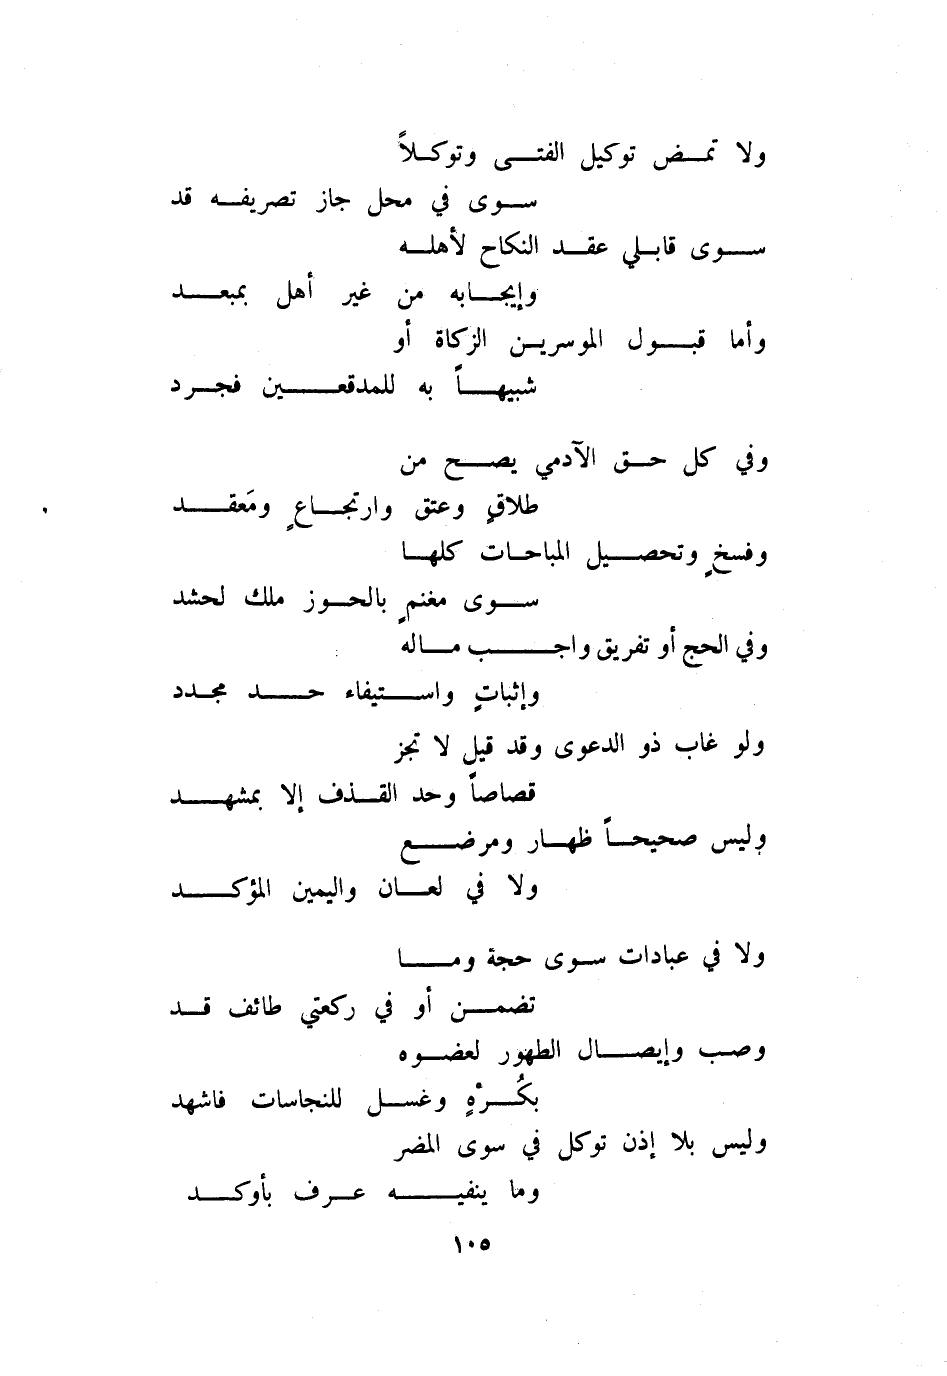 ولا تمض توكيل الفتى وتوكلاً
سوى في محل جاز تصريفه قد
سوى قابلي عقد النكاح لأهله
وإيجابه من غير أهل بمبعد
وأما قبول الموسرين الزكاة أو
شبيهاً به للمدقعين فجرد
وفي كل حق الآدمي يصح من
طلاقٍ وعتق وارتجاعٍ ومَعقد
وفسخٍ وتحصيل المباحات كلها
سوى مغنمٍ بالحوز ملك لحشد
وفي الحج أو تفريق واجب ماله
وإثباتٍ واستيفاء حد مجدد
ولو غاب ذو الدعوى وقد قيل لا تجز
قصاصاً وحد القذف إلا بمشهد
وليس صحيحاً ظهار ومرضع
ولا في لعان واليمين المؤكد
ولا في عبادات سوى حجة وما
تضمن أو في ركعتي طائف قد
وصب وإيصال الطهور لعضوه
بكُرْهٍ وغسل للنجاسات فاشهد
وليس بلا إذن توكل في سوى المضر
وما ينفيه عرف بأوكد
١٠٥